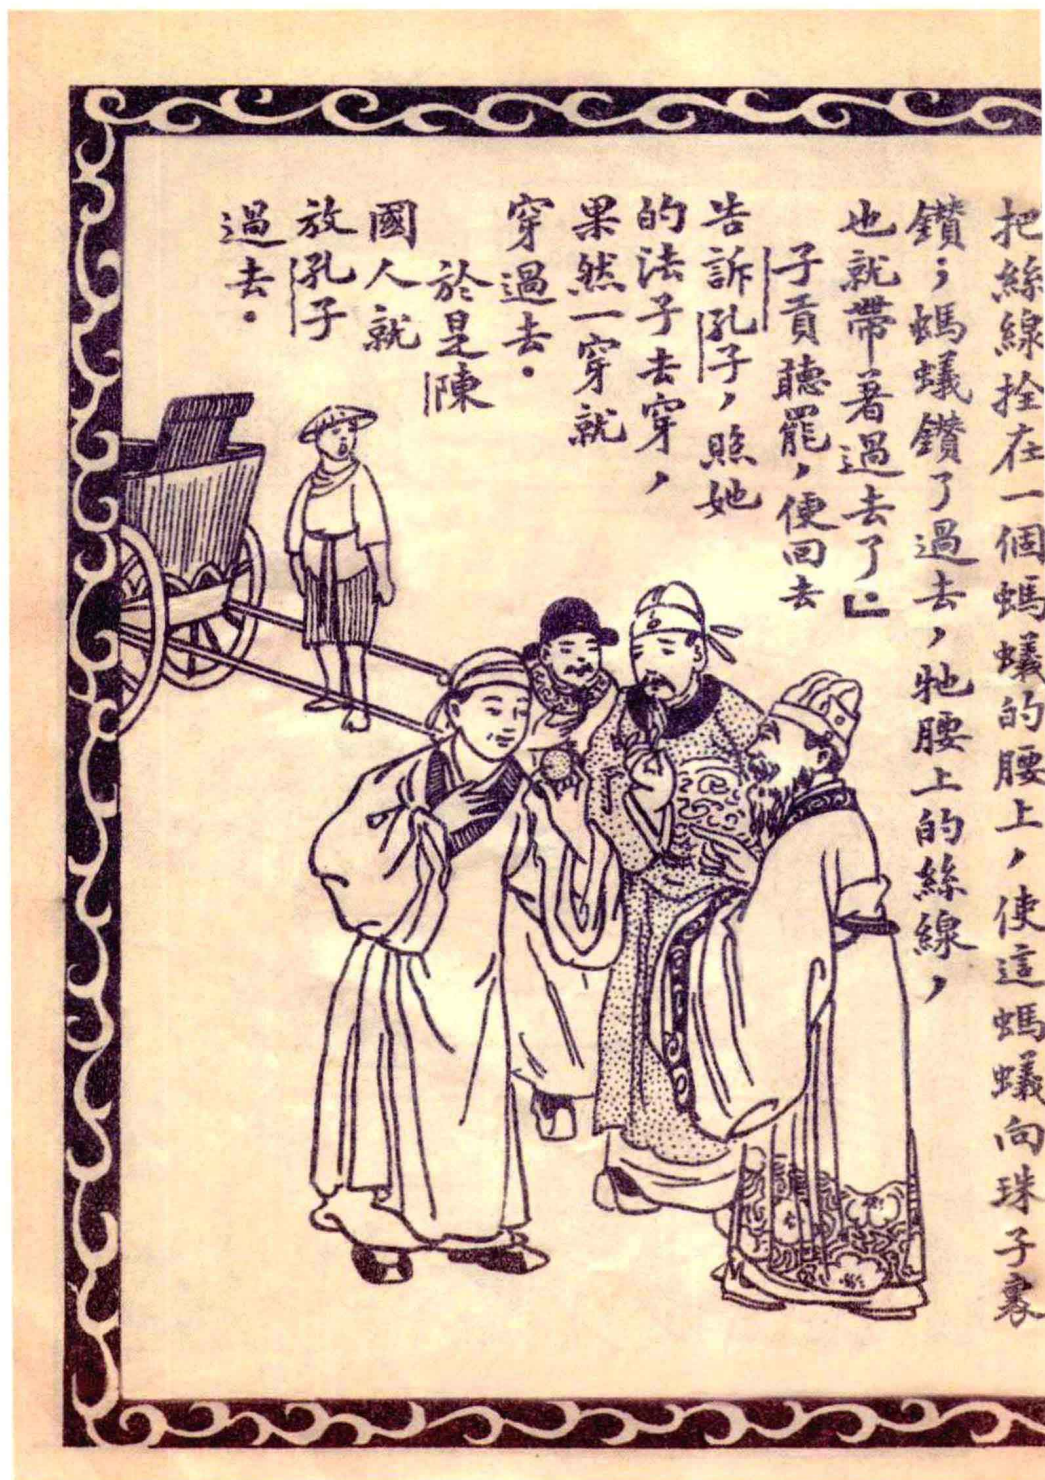 把絲線拴在一個螞蟻的腰上，使這螞蟻向珠子裏
鑽；螞蟻鑽了過去，牠腰上的絲線，
也就帶著過去了。」
子貢聽罷，便回去
告訴孔子，照她
的法子去穿，
果然一穿就
穿過去。
於是陳
國人就
放孔子
過去。